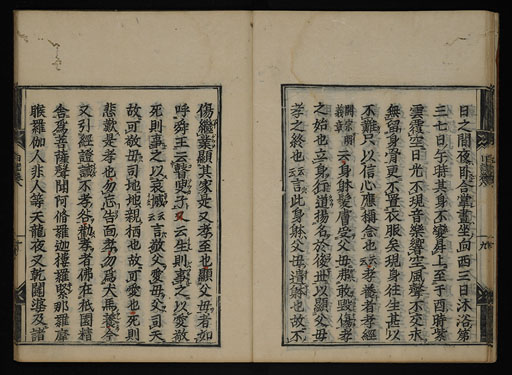 日之間夜臥合掌晝坐向西三日沐浴第
三七日午時其身不變昇上至于酉時紫
雲覆空日光不現音樂響空風聲不交永
無留身骨更不置衣服矣現身往生甚以
不難只以信心應稱念也云云孝養者孝經
開宗明義章云身躰髮膚受父母不敢毀傷孝
之始也立身行道揚名於後世以顯父母
孝之終也云云言此身躰父母遺躰也故不
傷繼業顯其家是又孝至也顯父母者如
呼舜王云瞽叟子又云生則事之以愛敬
死則事之以哀慼云云言敬父愛母父司天
故可敬母司地地親栖也故可愛也死則
悲歎是孝也勿忘告面孝勿爲犬馬養今
又引經證誡不孝勸孝者佛在祇園精
舍爲菩薩聲聞阿修羅迦樓羅緊那羅摩
睺羅伽人非人等天龍夜叉乾闥婆及諸